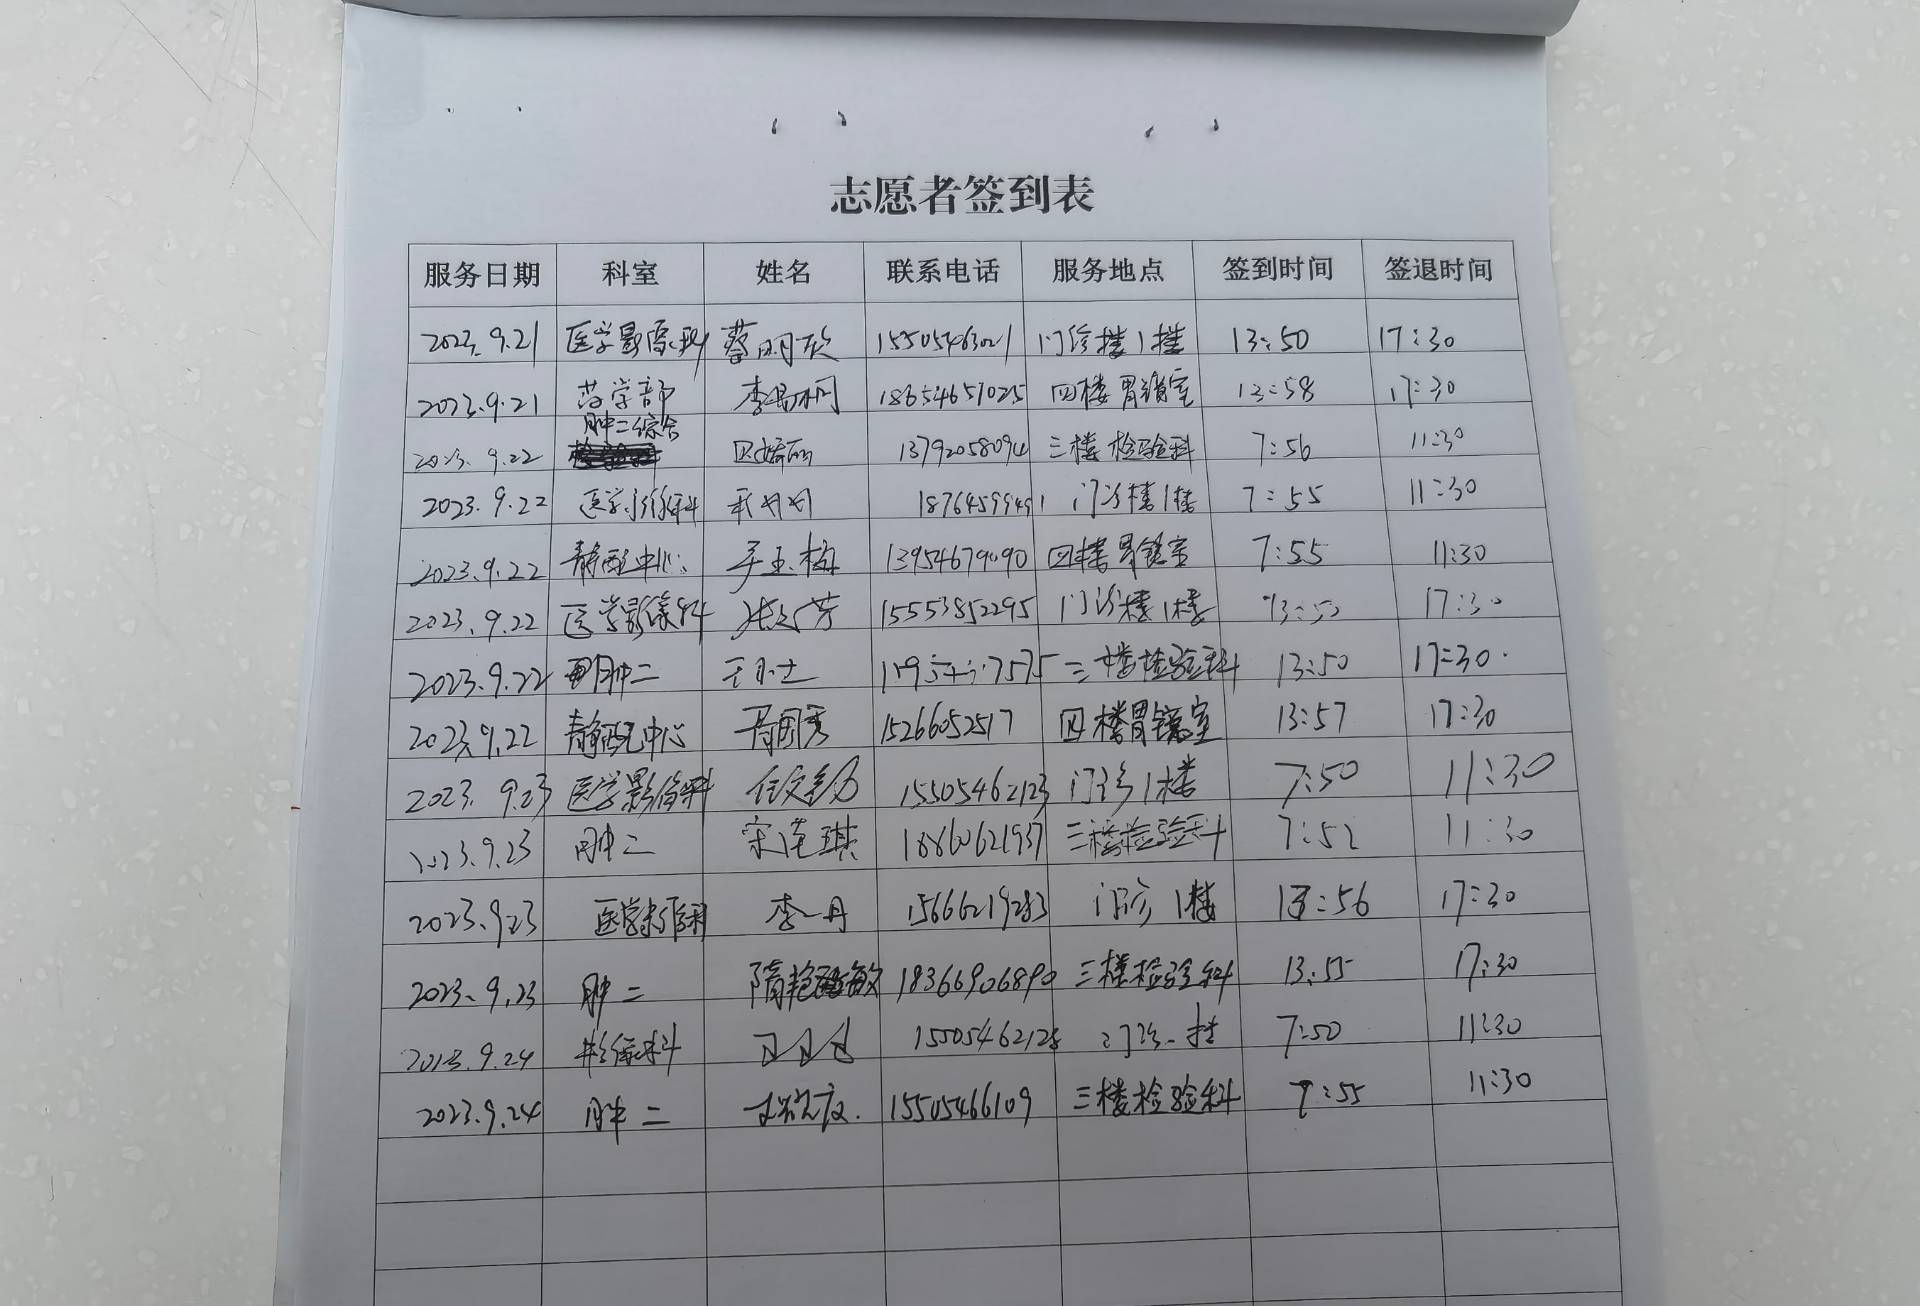 志愿者签到表
服务日期 科室 姓名 联系电话 服务地点 签到时间 签退时间
2023.9.21 医学影像科 蔡明欣 15505463021 门诊楼1楼 13:50 17:30
2023.9.21 药学部 18654651025 四楼胃镜室 13:58 17:30
2023.9.22 肿二综合 13792058094 三楼检验科 7:56 11:30
2023.9.22 医学影像科 18764599491 门诊楼1楼 7:55 11:30
2023.9.22 静配中心 13954679090 四楼胃镜室 7:55 11:30
2023.9.22 医学影像科 15553852295 门诊楼1楼 13:50 17:30
2023.9.22 肿二 三楼检验科 13:50 17:30
2023.9.22 静配中心 15266052517 四楼胃镜室 13:57 17:30
2023.9.23 医学影像科 15505462123 门诊1楼 7:50 11:30
2023.9.23 肿二 18860621937 三楼检验科 7:52 11:30
2023.9.23 医学影像科 李丹 15666219283 门诊1楼 13:56 17:30
2023.9.23 肿二 18366906890 三楼检验科 13:55 17:30
2023.9.24 影像科 15505462128 7:50 11:30
2023.9.24 肿二 15505466109 三楼检验科 7:55 11:30